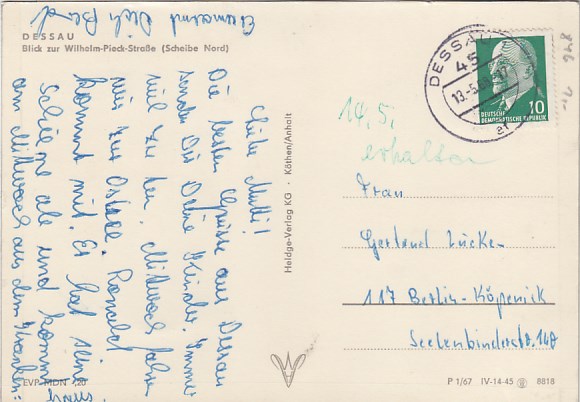 DESSAU
Blick zur Wilhelm-Pieck-Straße (Scheibe Nord)
Liebe Mutti!
Die besten Grüsse aus Dessau
senden Dir Deine Kinder. Immer
viel zu tun. Mittwoch fahren
wir zur Ostsee. Ronald
kommt mit. Er hat seine
Schiene ab und kommt
am Mittwoch aus dem Kranken-
haus
Es umarmt Dich
Heldge-Verlag KG · Köthen/Anhalt
DESSAU
45
13.-5.
af
10
DEUTSCHE
DEMOKRATISCHE REPUBLIK
846
14.5.
erhalten
Frau
Gerland Lücke
117 Berlin-Köpenick
Seelenbinderstr. 140
EVP MDN -,20
P 1/67 IV-14-45 8818